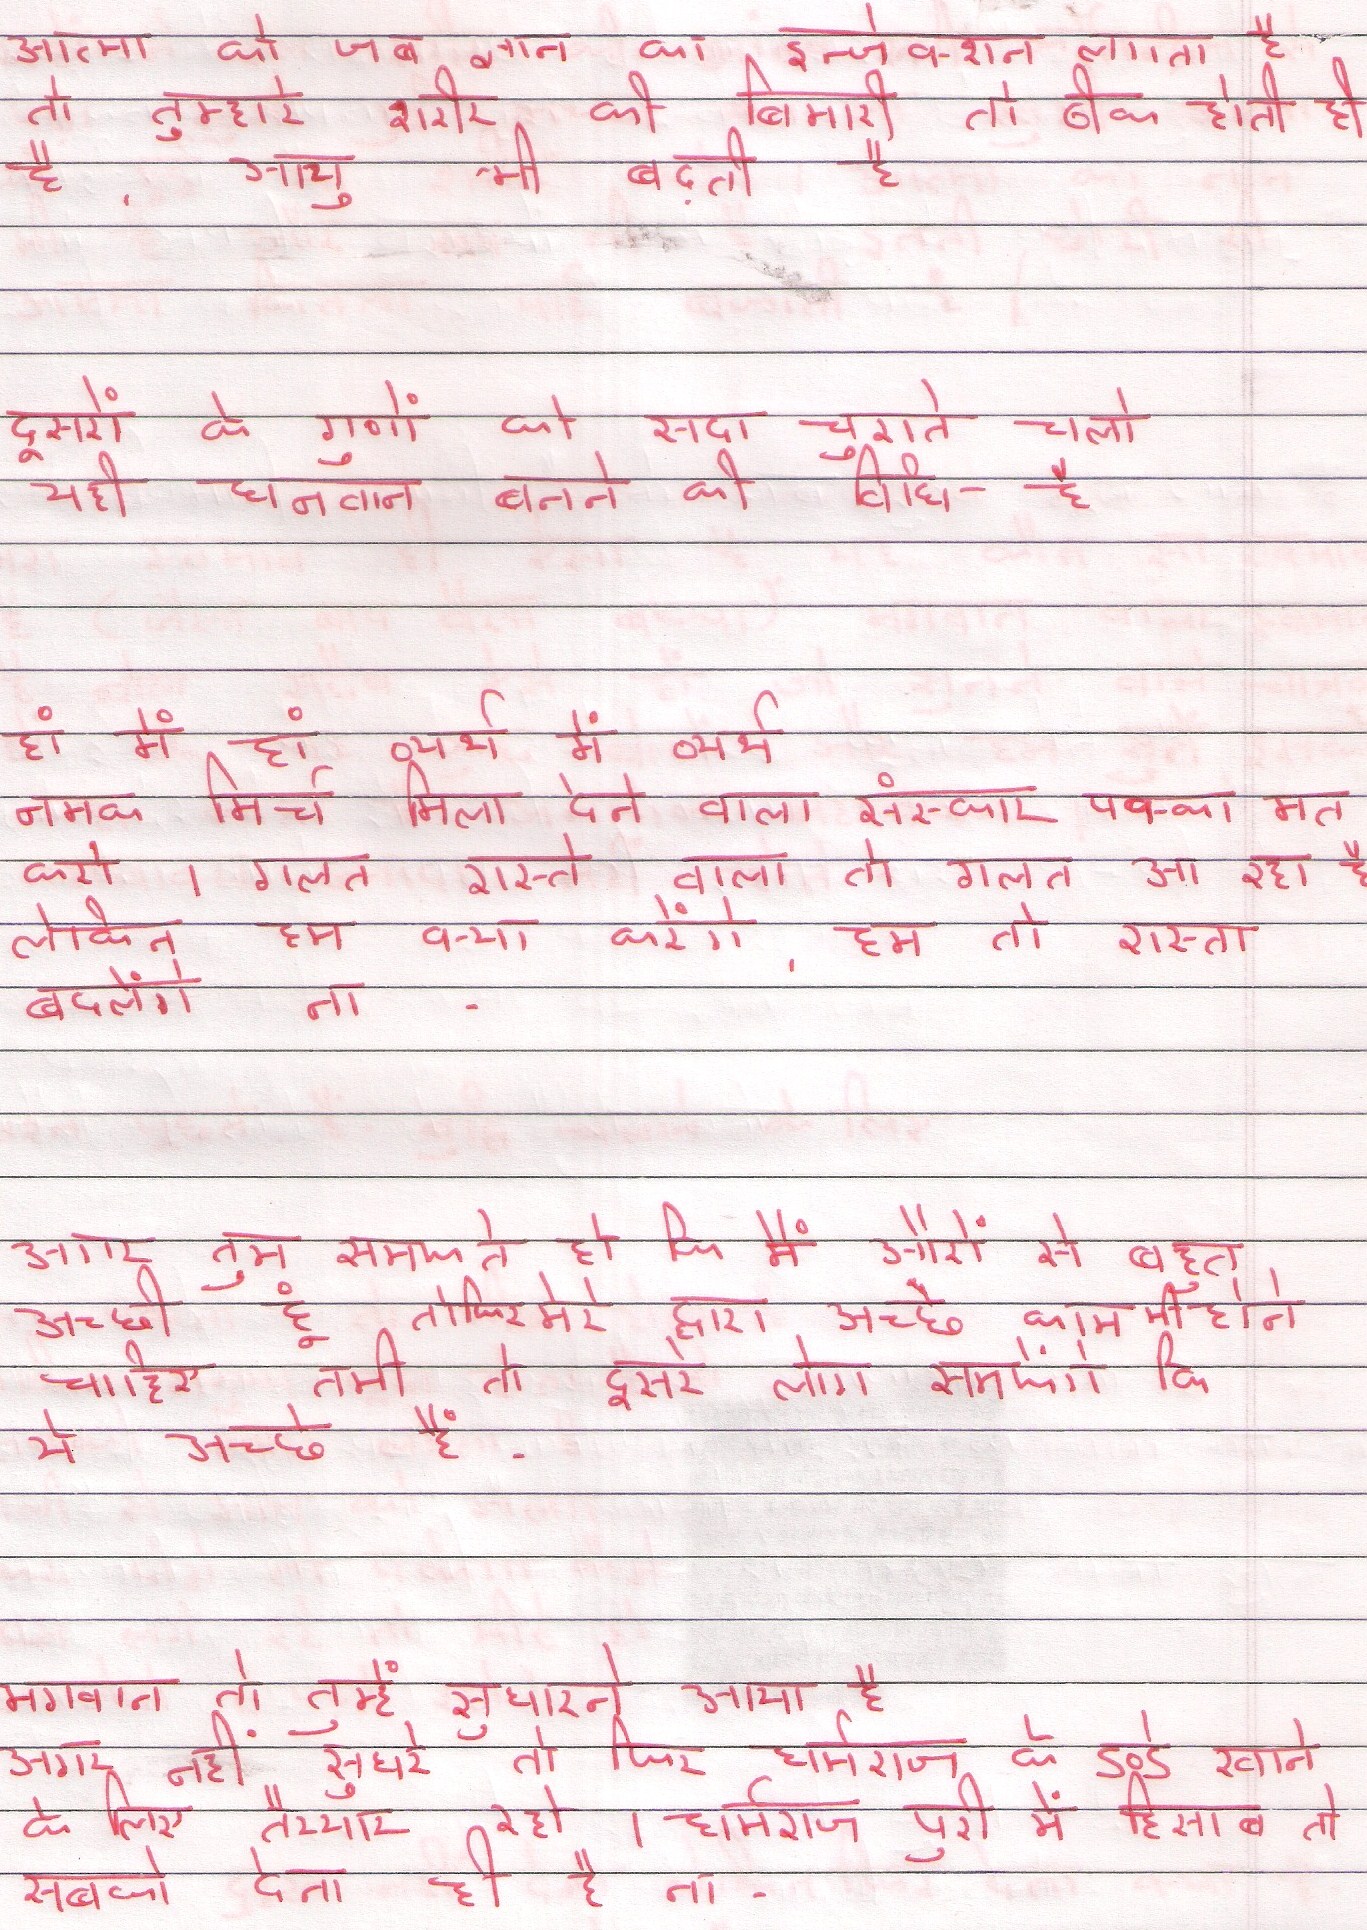 आत्मा को जब ज्ञान का इन्जेक्शन लगता है
तो तुम्हारे शरीर की बिमारी तो ठीक होती ही
है, आयु भी बढ़ती है
दूसरों के गुणों को सदा चुराते चलो
यही धनवान बनने की विधि है
हां में हां, व्यर्थ में व्यर्थ
नमक मिर्च मिला देने वाला संस्कार पक्का मत
करो। गलत रास्ते वाला तो गलत आ रहा है
लेकिन हम क्या करेंगे, हम तो रास्ता
बदलेंगे ना -
अगर तुम समझते हो कि मैं औरों से बहुत
अच्छी हूं तो फिर मेरे द्वारा अच्छे काम भी होने
चाहिए तभी तो दूसरे लोग समझेंगे कि
ये अच्छे हैं -
भगवान तो तुम्हें सुधारने आया है
अगर नहीं सुधरे तो फिर धर्मराज के डण्डे खाने
के लिए तैय्यार रहो। धर्मराज पुरी में हिसाब तो
सबको देना ही है ना -